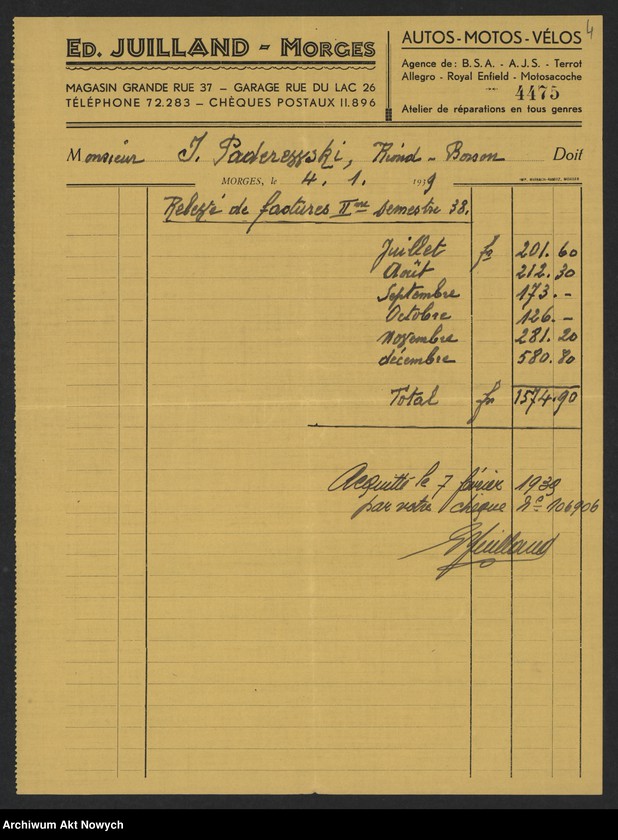 4
ED. JUILLAND - MORGES
MAGASIN GRANDE RUE 37 – GARAGE RUE DU LAC 26
TÉLÉPHONE 72.283 – CHÈQUES POSTAUX II.896
AUTOS - MOTOS - VÉLOS
Agence de : B.S.A. - A.J.S. - Terrot
Allegro - Royal Enfield - Motosacoche
4475
Atelier de réparations en tous genres
Monsieur J. Paderewski, Riond - Bosson Doit
MORGES, le 4. 1. 1939
Relevé de factures II me semestre 38.
Juillet fr 201.60
Août 212.30
Septembre 173.-
Octobre 126.-
Novembre 281.20
décembre 580.80
Total fr 1574.90
Acquitté le 7 février 1939
par votre chèque No 106906
E Juilland
Archiwum Akt Nowych